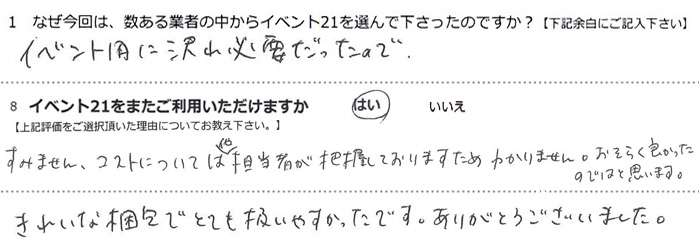 1 なぜ今回は、数ある業者の中からイベント21を選んで下さったのですか？【下記余白にご記入下さい】
イベント用に沢山必要だったので.
8 イベント21をまたご利用いただけますか はい いいえ
【上記評価をご選択頂いた理由についてお教え下さい。】
すみません、コストについては他担当者が把握しておりますため わかりません。おそらく良かった
のではと思います。
きれいな梱包でとても扱いやすかったです。ありがとうございました。